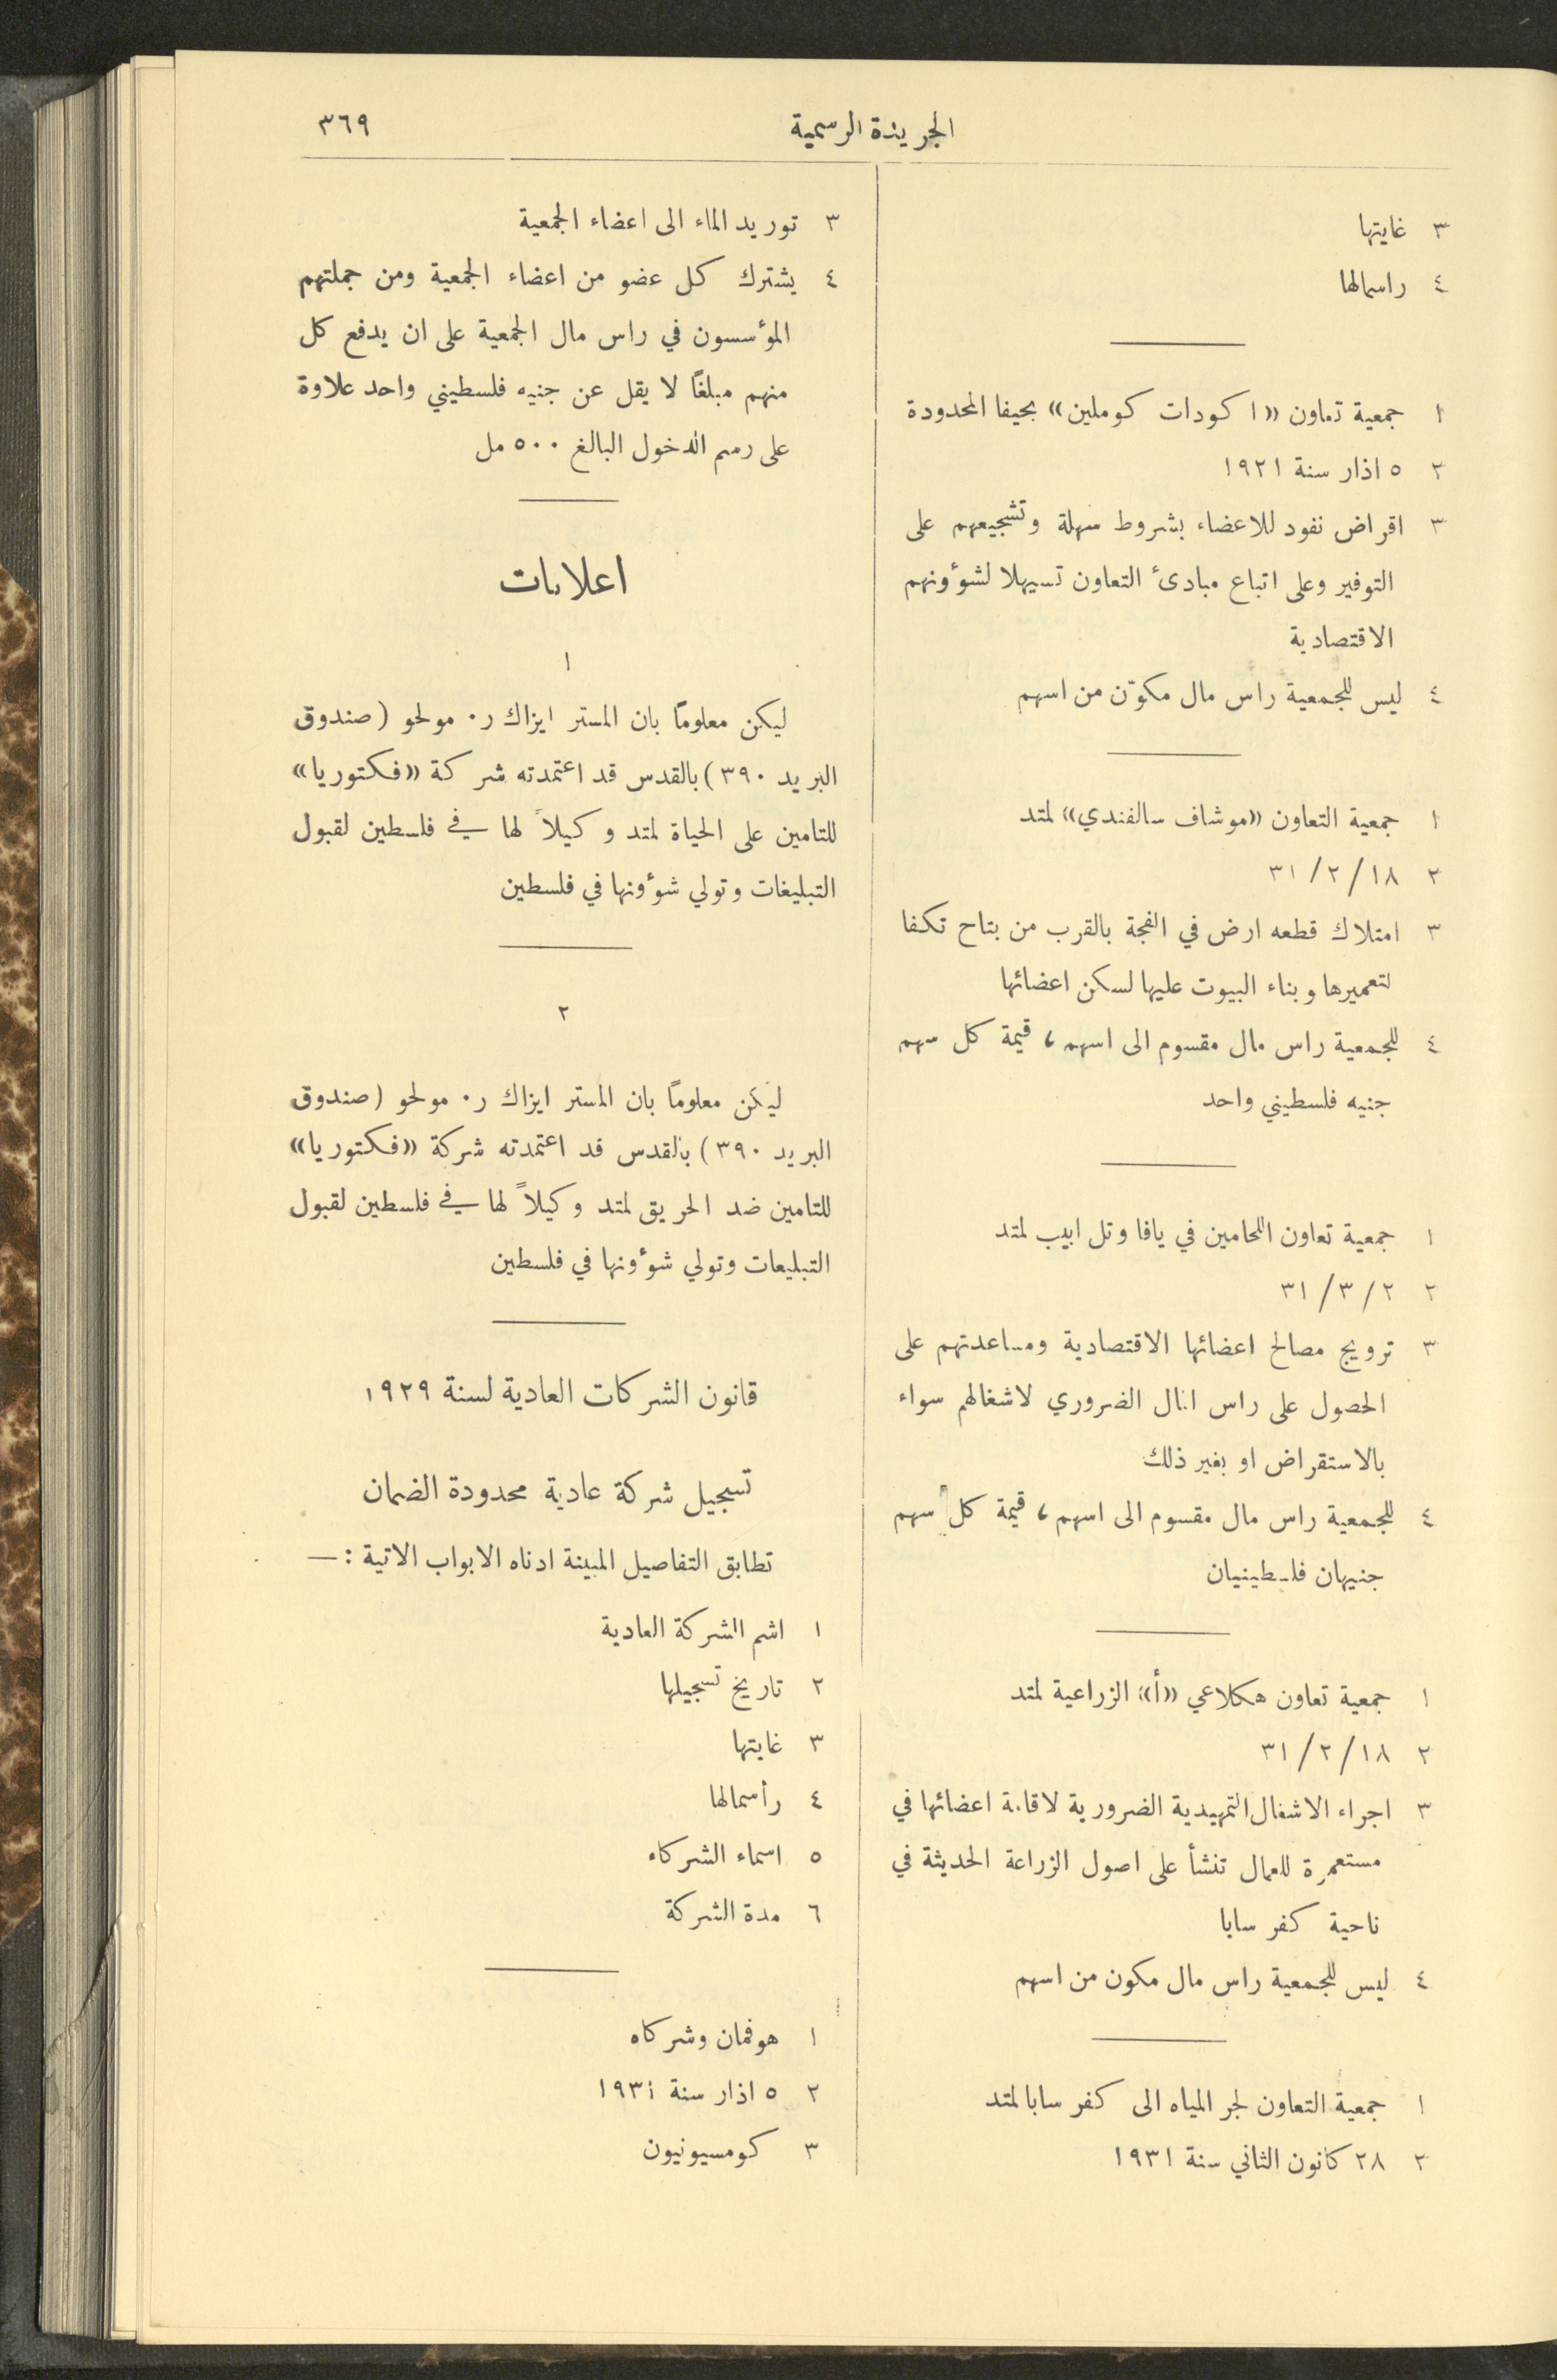 الجريدة الرسمية
٣٦٩
٣ غايتها
٤ راسمالها
١ جمعية تعاون «اكودات كوملين» بحيفا المحدودة
٢ ٥ اذار سنة ١٩٢١
٣ اقراض نقود للاعضاء بشروط سهلة وتشجيعهم على
التوفير وعلى اتباع مبادئ التعاون تسهيلا لشؤونهم
الاقتصادية
٤ ليس للجمعية راس مال مكوّن من اسهم
١ جمعية التعاون «موشاف سالفندي» لمتد
٢ ١٨/٢/٣١
٣ امتلاك قطعه ارض في الفجة بالقرب من بتاح تكفا
لتعميرها وبناء البيوت عليها لسكن اعضائها
٤ للجمعية راس مال مقسوم الى اسهم، قيمة كل سهم
جنيه فلسطيني واحد
١ جمعية تعاون المحامين في يافا وتل ابيب لمتد
٢ ٢/٣/٣١
٣ ترويج مصالح اعضائها الاقتصادية ومساعدتهم على
الحصول على راس المال الضروري لاشغالهم سواء
بالاستقراض او بغير ذلك
٤ للجمعية راس مال مقسوم الى اسهم، قيمة كل سهم
جنيهان فلسطينيان
١ جمعية تعاون هكلاعي «أ» الزراعية لمتد
٢ ١٨/٢/٣١
٣ اجراء الاشغال التمهيدية الضرورية لاقامة اعضائها في
مستعمرة للعمال تنشأ على اصول الزراعة الحديثة في
ناحية كفر سابا
٤ ليس للجمعية راس مال مكون من اسهم
١ جمعية التعاون لجر المياه الى كفر سابا لمتد
٢ ٢٨ كانون الثاني سنة ١٩٣١
٣ توريد الماء الى اعضاء الجمعية
٤ يشترك كل عضو من اعضاء الجمعية ومن جملتهم
المؤسسون في راس مال الجمعية على ان يدفع كل
منهم مبلغًا لا يقل عن جنيه فلسطيني واحد علاوة
على رسم الدخول البالغ ٥٠٠ مل
اعلانات
١
ليكن معلومًا بان المستر ايزاك ر. مولحو (صندوق
البريد ٣٩٠) بالقدس قد اعتمدته شركة «فكتوريا»
للتامين على الحياة لمتد وكيلاً لها في فلسطين لقبول
التبليغات وتولي شؤونها في فلسطين
٢
ليكن معلومًا بان المستر ايزاك ر. مولحو (صندوق
البريد ٣٩٠) بالقدس قد اعتمدته شركة «فكتوريا»
للتامين ضد الحريق لمتد وكيلاً لها في فلسطين لقبول
التبليعات وتولي شؤونها في فلسطين
قانون الشركات العادية لسنة ١٩٢٩
تسجيل شركة عادية محدودة الضمان
تطابق التفاصيل المبينة ادناه الابواب الاتية :—
١ اشم الشركة العادية
٢ تاريخ تسجيلها
٣ غايتها
٤ رأسمالها
٥ اسماء الشركاء
٦ مدة الشركة
١ هوفمان وشركاه
٢ ٥ اذار سنة ١٩٣١
٣ كومسيونيون